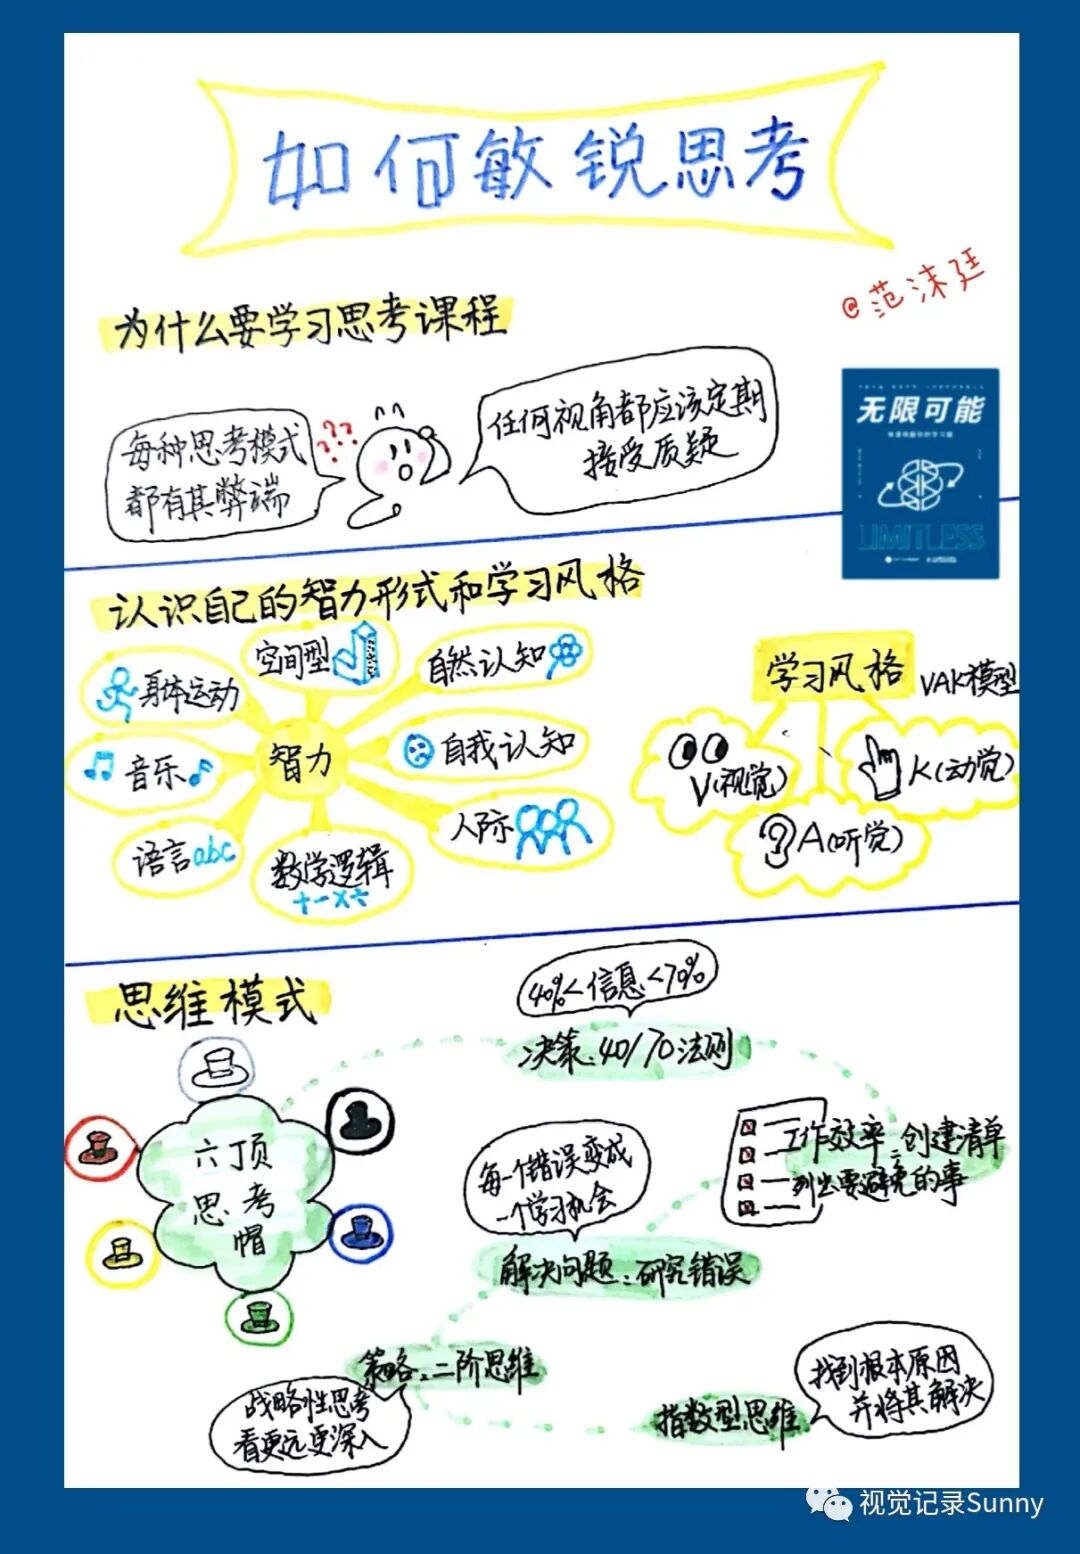 如何敏锐思考
@范沫廷
为什么要学习思考课程
每种思考模式
都有其弊端
???
任何视角都应该定期
接受质疑
无限可能
LIMITLESS
认识自己的智力形式和学习风格
智力
空间型
自然认知
自我认知
人际
数学逻辑
+-×÷
语言abc
音乐
身体运动
学习风格
VAK模型
V(视觉)
A(听觉)
K(动觉)
思维模式
六顶
思考
帽
40%<信息<70%
决策:40/70法则
工作效率:创建清单
列出要避免的事
每一个错误变成
一个学习机会
解决问题:研究错误
策略:二阶思维
战略性思考
看更远更深入
指数型思维
找到根本原因
并将其解决
视觉记录Sunny